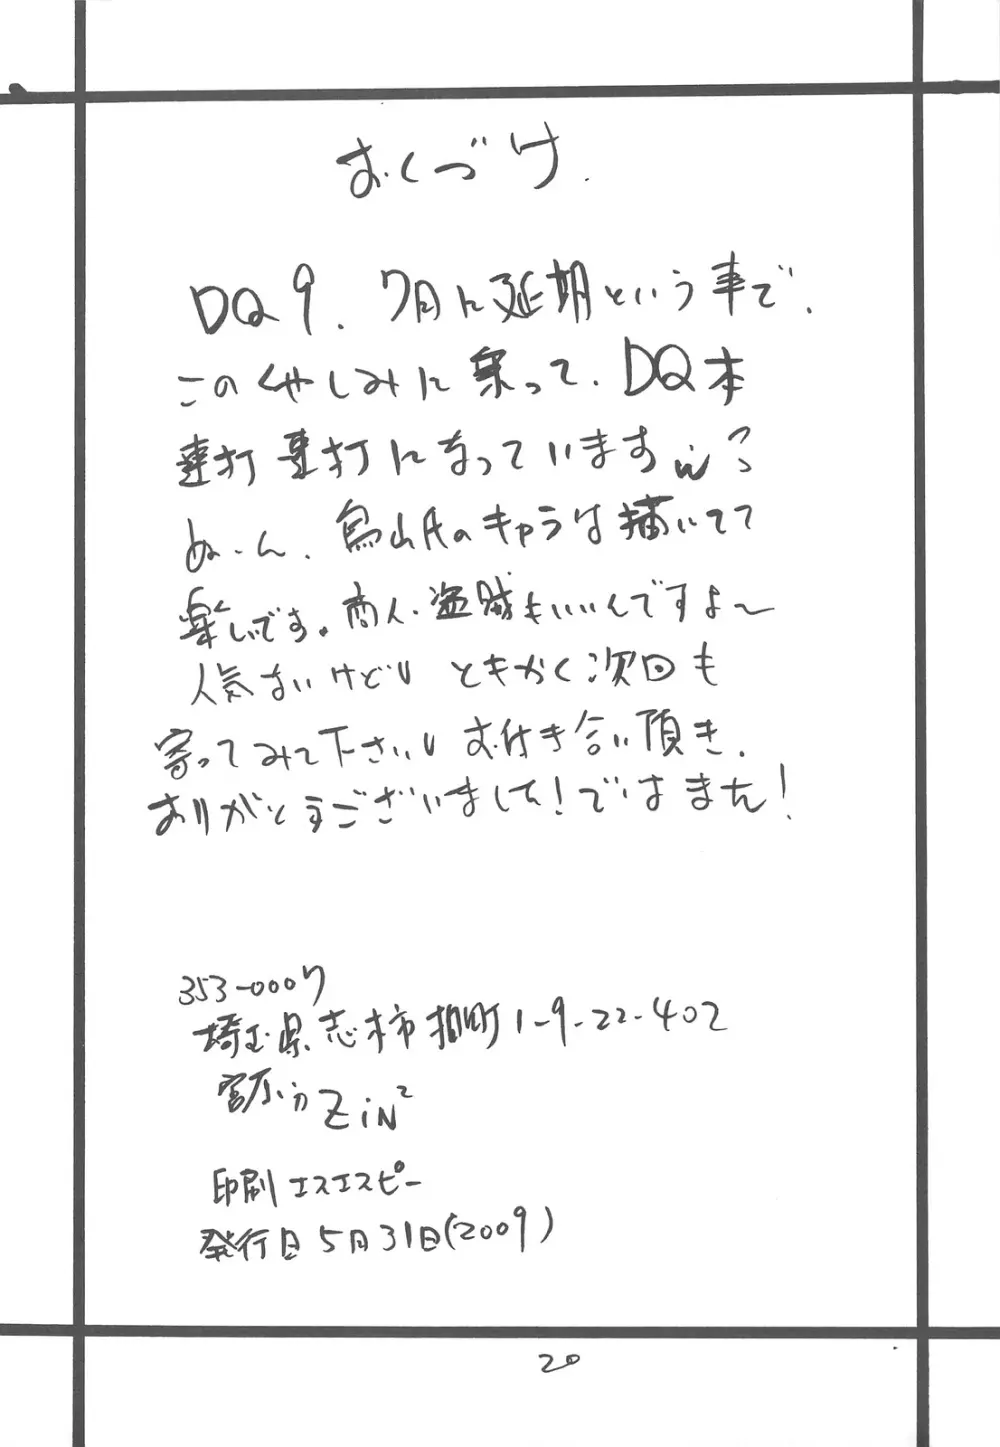 おくづけ.
DQ9. 7月に延期という事で.
このくやしみに乗って、DQ本
連打連打になっていますw?
ぬーん. 鳥山氏のキャラは描いてて
楽しいです。商人・盗賊もいいんですよ〜
人気ないけどし ともかく次回も
寄ってみて下さいし お付き合い頂き.
ありがとうございました!ではまた!
353-0007
埼玉県志木市柏町1-9-22-402
宮下 ZiN²
印刷 エスエスピー
発行日 5月31日(2009)
20